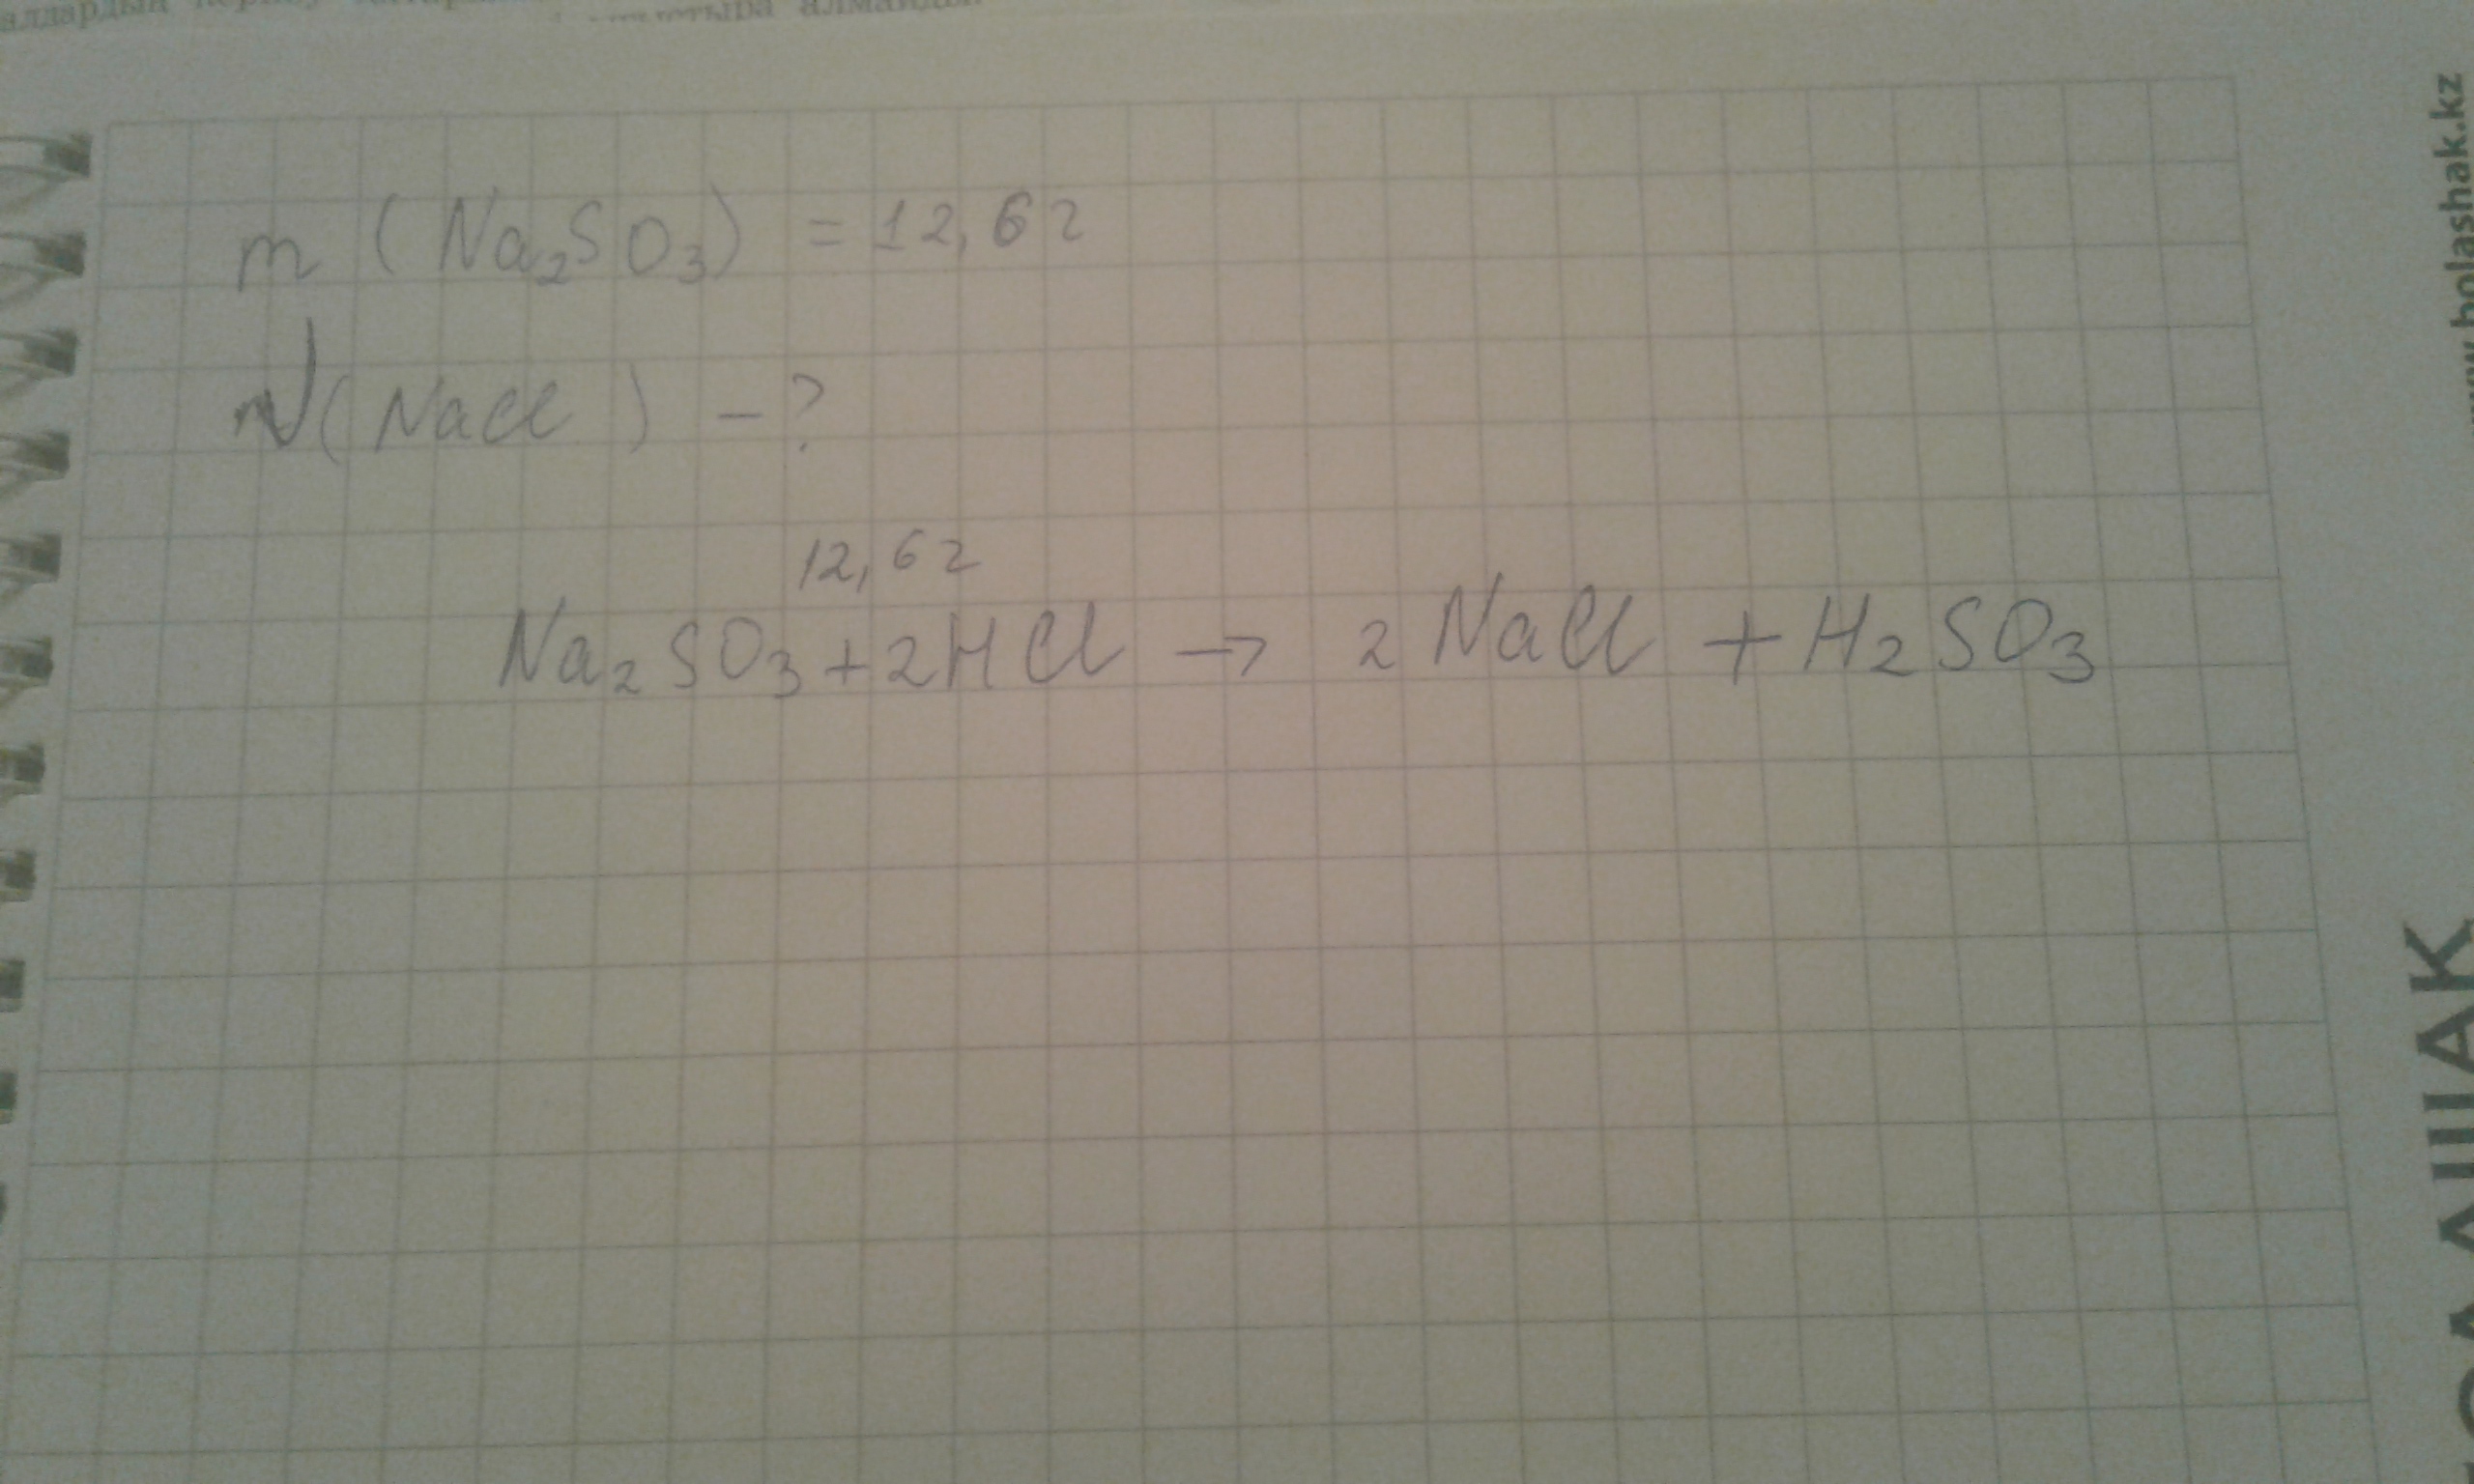 алмайды.
m (Na₂SO₃) = 12,6г
(NaCl) – ?
12,6г
Na₂SO₃ + 2HCl → 2NaCl + H₂SO₃
www.bolashak.kz